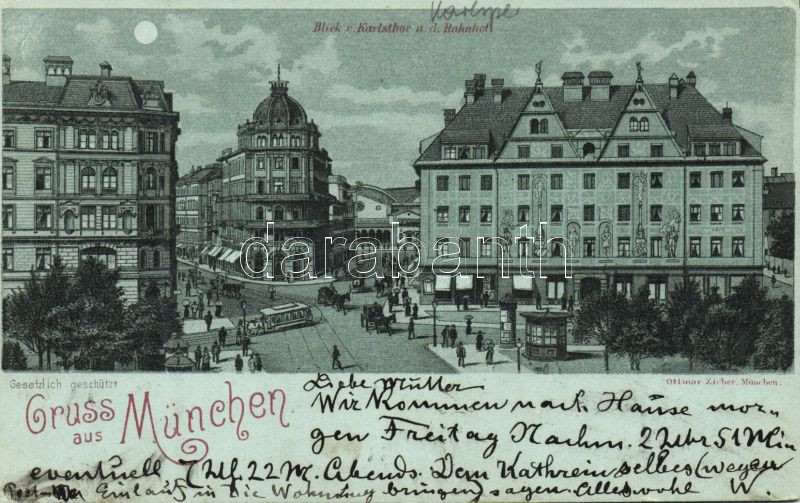 Karlspl
Blick v. Karlsthor n. d. Bahnhof
darabanth
Gesetzlich geschützt
Ottmar Zieher, München.
Gruss
aus München.
Liebe Mutter
Wir kommen nach Hause mor-
gen Freitag Nachm. 2 Uhr 51 Min
eventuell 7 Uhr 22 M. Abends. Dem Kathrein selbes (wegen
Einlauf in die Wohnung bringen) sagen. Alles wohl W